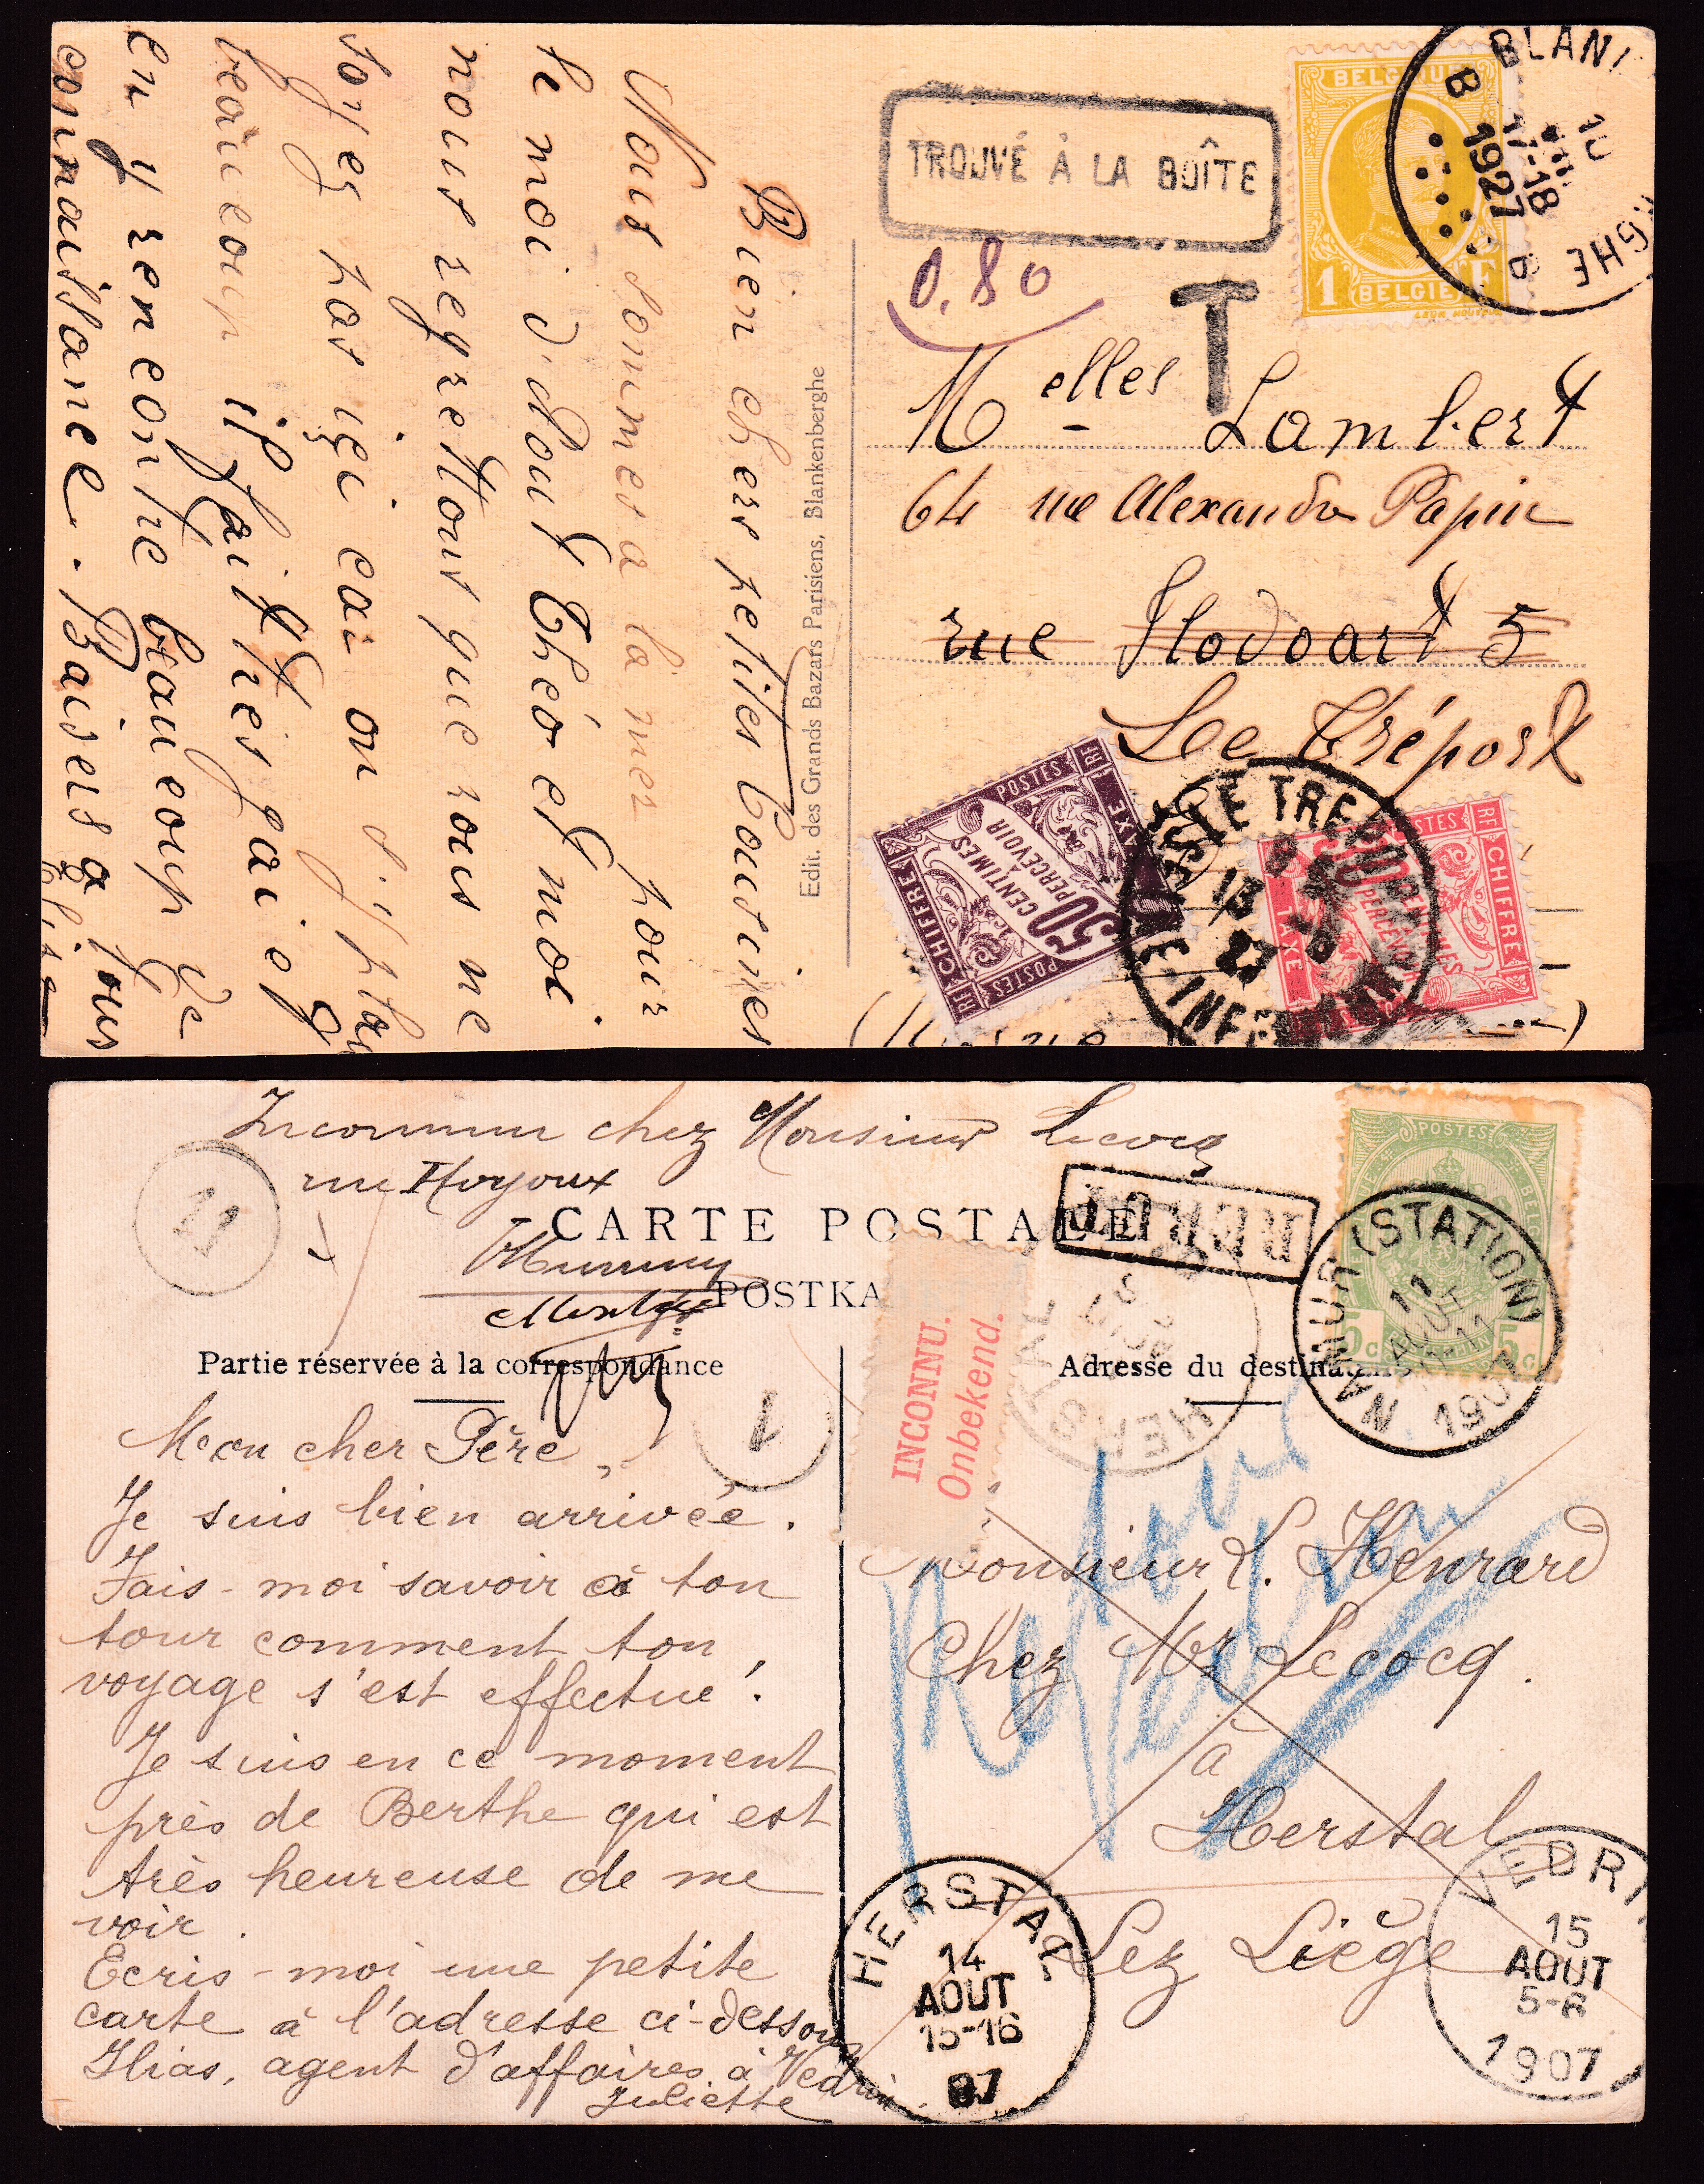 Bien chers petites Cousines
Nous sommes a la mer pour
le moi d'Aout Théo et moi
nous regrettons que vous ne
soyez pas içi car on s'y plai
beaucoup il fait très gai et
en y rencontre beaucoup de
connaissance. Baisers a tous
Edit. des Grands Bazars Parisiens, Blankenberghe
TROUVÉ À LA BOÎTE
0.80
T
BELGIQUE
1 F
BELGIË
BLANK
GHE
B B
10
VIII
17-18
1927
Melles Lambert
64 rue Alexandre Papin
rue Flodoart 5
Le Tréport
RF POSTES RF
CHIFFRE TAXE
50
CENTIMES
À
PERCEVOIR
RF POSTES
LE TREPORT
13
27
SNE INFRE
POSTES RF
CHIFFRE TAXE
CENTIMES
PERCEVOIR
Inconnu chez Monsieur Lecocq
rue Hoyoux
CARTE POSTALE
POSTKA
REBUT
POSTES
5c 5c
NAMUR (STATION)
11
AOUT
1907
Partie réservée à la correspondance
Adresse du destinat
21
1
INCONNU.
Onbekend.
HERSTAL
AOUT
Retour
Mon cher Père,
Je suis bien arrivée.
Fais-moi savoir à ton
tour comment ton
voyage s'est effectué!
Je suis en ce moment
près de Berthe qui est
très heureuse de me
voir.
Ecris-moi une petite
carte à l'adresse ci-dessous
Ilias, agent d'affaires à Vedrin
Juliette
Monsieur L. Henrard
Chez Mr Lecocq.
à
Herstal
Lez Liège
HERSTAL
14
AOUT
15-16
07
VEDRI
15
AOUT
5-6
1907